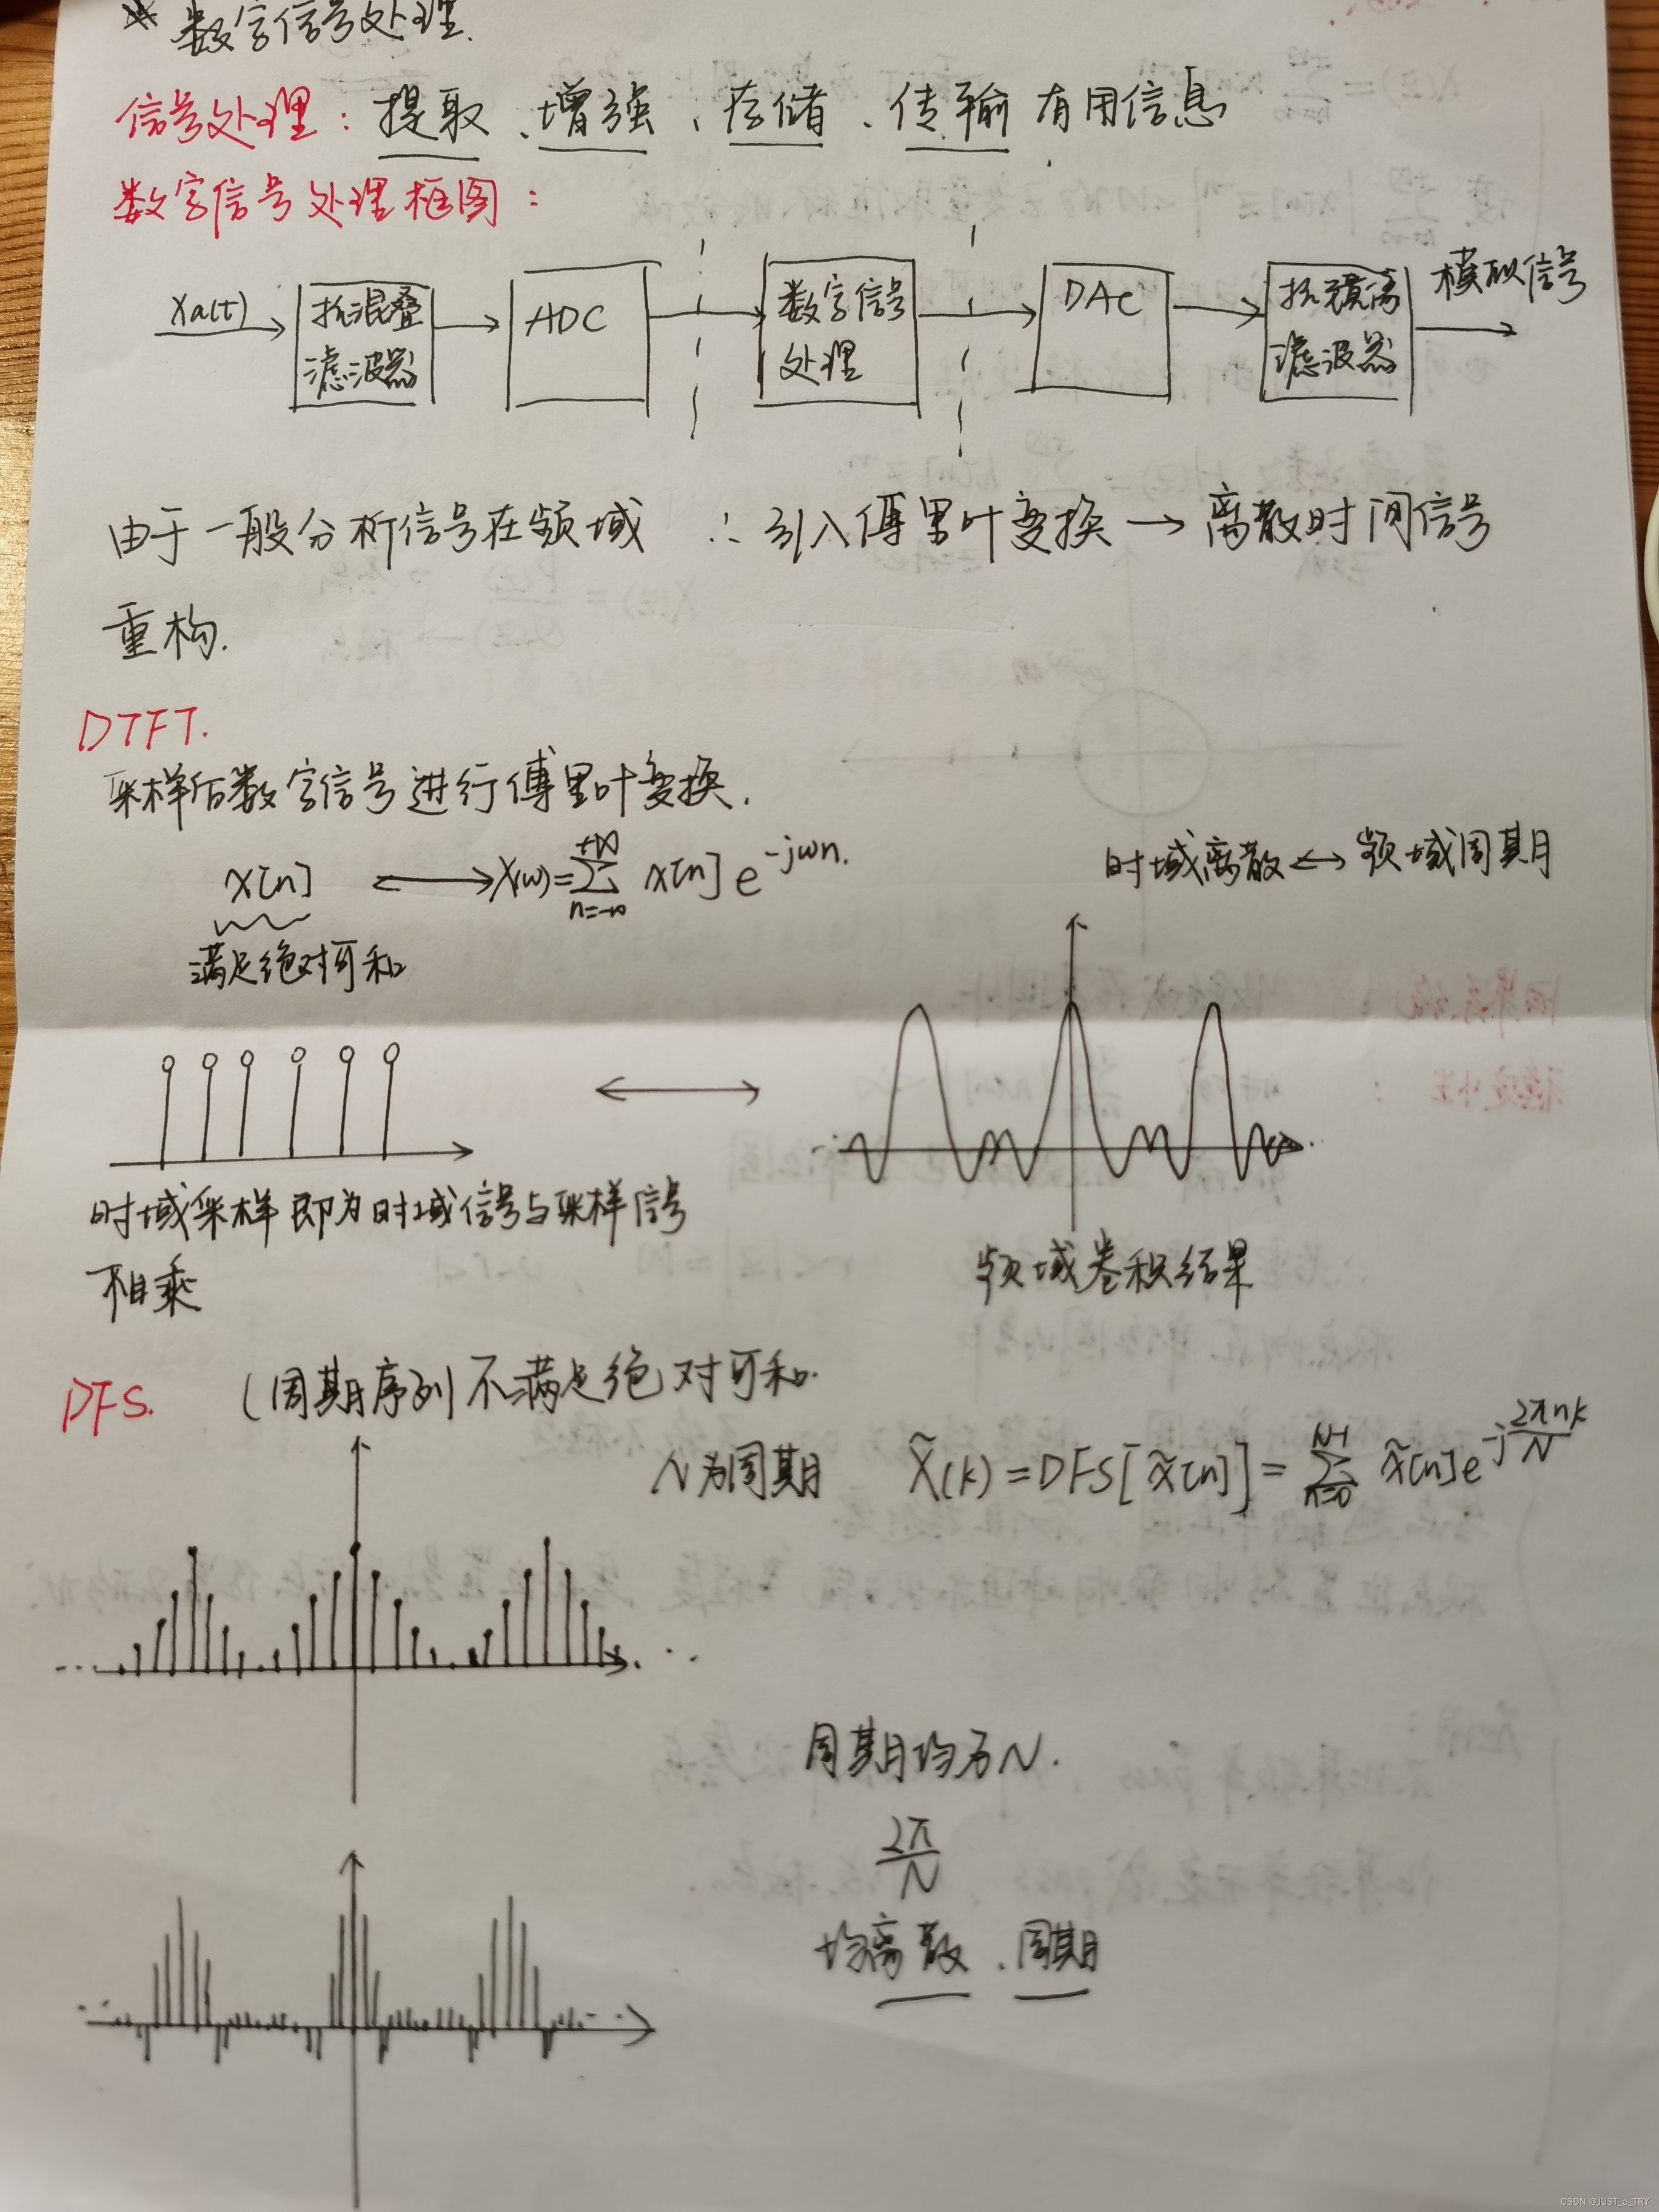 * 数字信号处理.
信号处理：提取、增强、存储、传输有用信息
数字信号处理框图：
Xa(t)
抗混叠
滤波器
ADC
数字信号
处理
DAC
抗镜像
滤波器
模拟信号
由于一般分析信号在频域 ∴引入傅里叶变换→离散时间信号
重构.
DTFT.
采样后数字信号进行傅里叶变换.
x[n] ⟷ X(ω)=∑_{n=-∞}^{+∞} x[n] e^{-jωn}.
满足绝对可和
时域离散↔频域周期
时域采样即为时域信号与采样信号
相乘
频域卷积结果
DFS. (周期序列不满足绝对可和.
N为周期 X̃(k)=DFS[x̃[n]]=∑_{n=0}^{N-1} x̃[n]e^{-j2πnk/N}
周期均为N.
2π/N
均离散、周期
CSDN @JUST_a_TRY